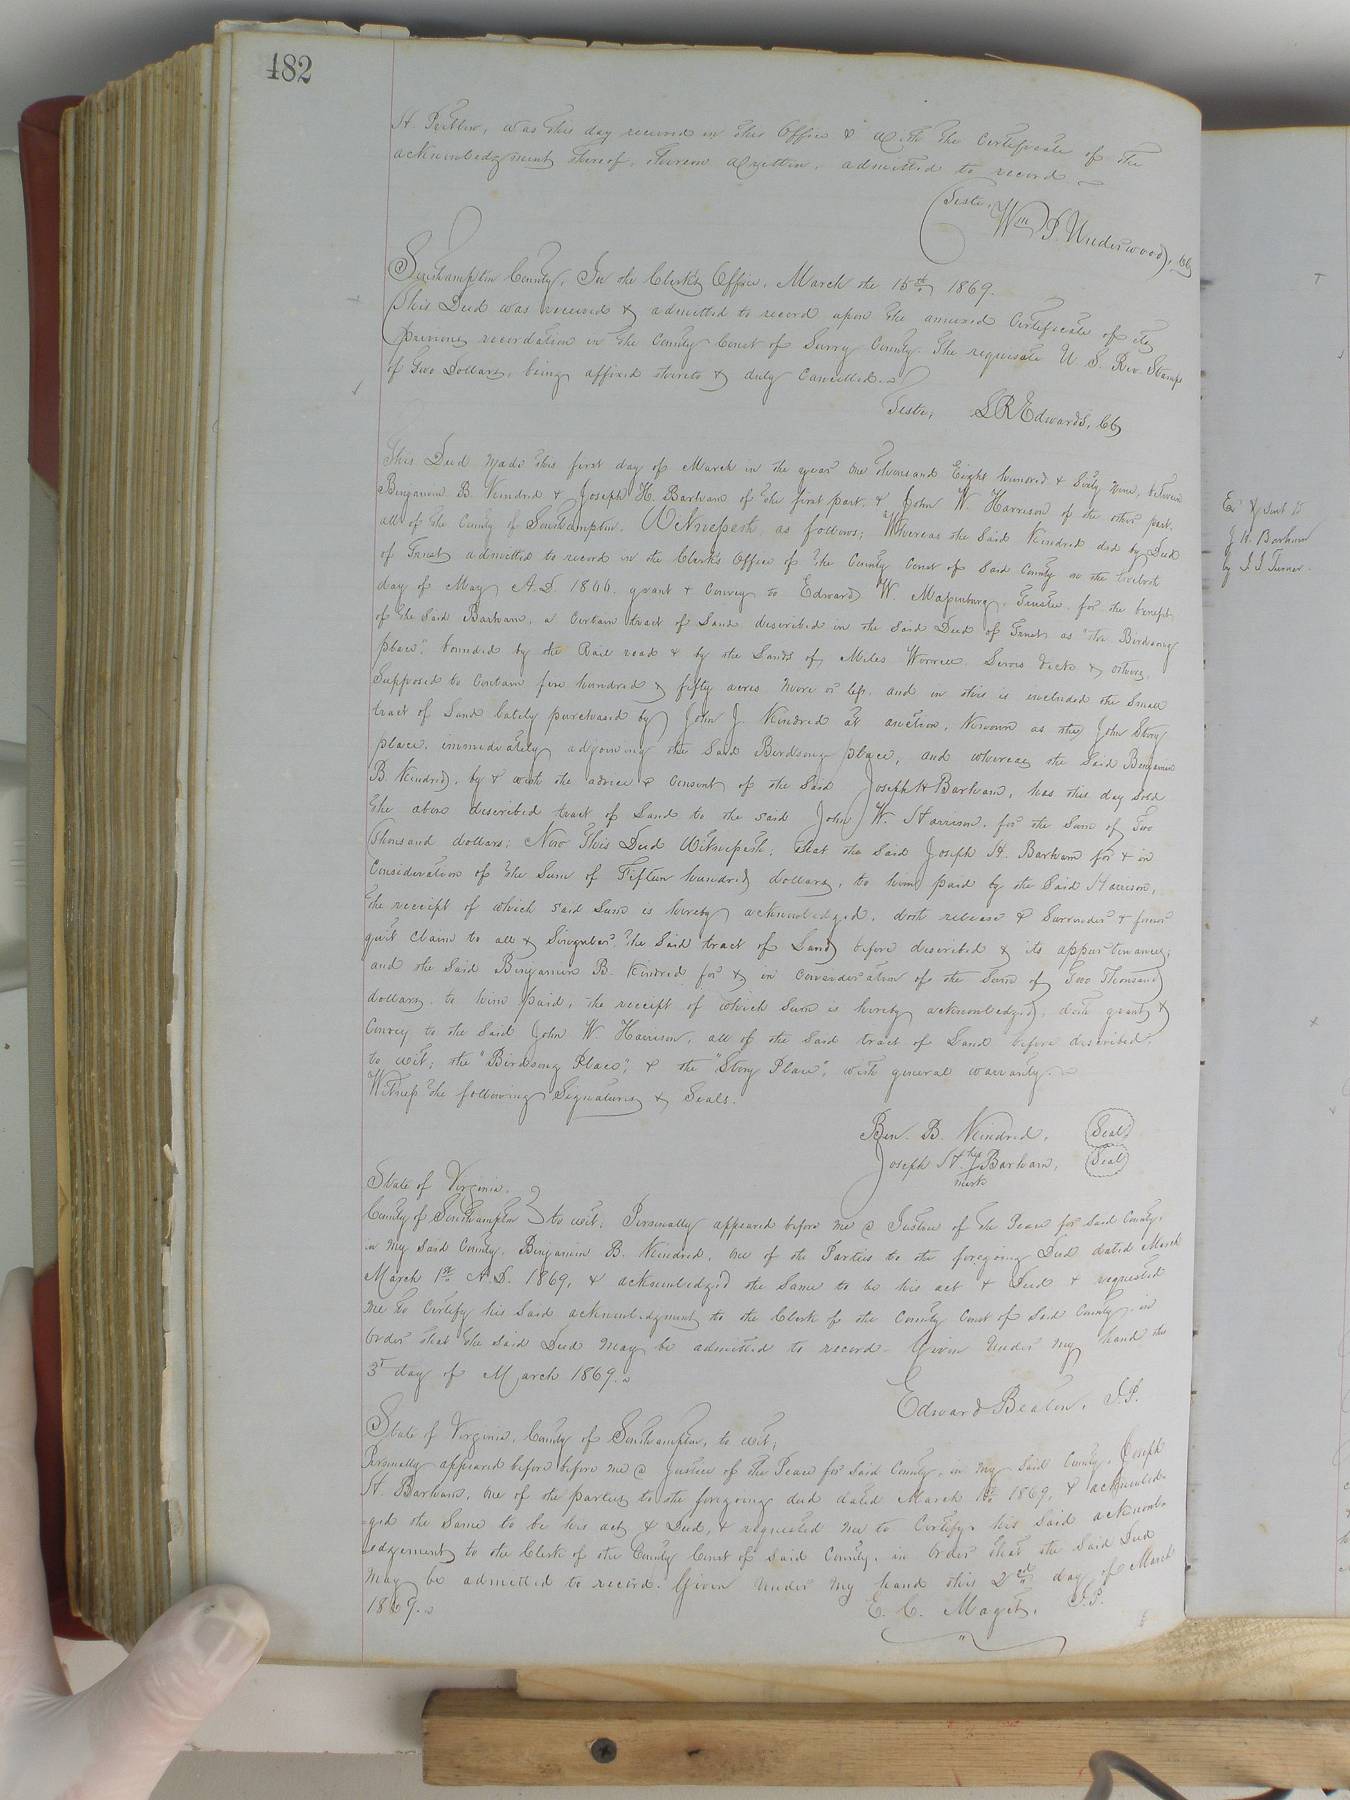 482
H. Pretlow, was this day received in this Office & with the Certificate of the
acknowledgment thereof, thereon written, admitted to record
Teste, Wm P. Underwood, CC
Southampton County, In the Clerk's Office, March the 15th 1869.
This Deed was received & admitted to record upon the annexed Certificate of its
previous recordation in the County Court of Surry County. The requisite U. S. Rev. Stamps
of Two Dollars, being affixed thereto & duly Cancelled.
Teste, L R Edwards, CC
This Deed made this first day of March in the year One thousand Eight hundred & Sixty nine, between
Benjamin B. Kindred & Joseph H. Barham of the first part, & John W. Harrison of the other part,
all of the County of Southampton. Witnesseth as follows; Whereas the Said Kindred did by Deed
of Trust admitted to record in the Clerk's Office of the County Court of Said County on the twelvth
day of May A.D. 1866. grant & Convey to Edward W. Massenburg, Trustee for the benefit
of the Said Barham, a Certain tract of Land described in the Said Deed of Trust as "the Birdsong
place", bounded by the Rail road & by the Lands of Miles Worrell, & others,
Supposed to Contain five hundred & fifty acres more or less, and in this is included the Small
tract of Land lately purchased by John J. Kindred at auction, Known as the John Story
place, immediately adjoining the Said Birdsong place, and whereas the Said Benjamin
B. Kindred, by & with the advice & Consent of the Said Joseph H Barham, has this day Sold
the above described tract of Land to the said John W. Harrison, for the Sum of Two
Thousand dollars: Now This Deed Witnesseth; that the Said Joseph H. Barham for & in
Consideration of the Sum of Fifteen hundred dollars, to him paid by the Said Harrison,
the receipt of which said Sum is hereby acknowledged, doth release & Surrender & forever
quit Claim to all & Singular the Said tract of Land before described & its appurtenances;
and the Said Benjamin B. Kindred for & in Consideration of the Sum of Two Thousand
dollars, to him paid, the receipt of which Sum is hereby acknowledged, doth grant &
Convey to the Said John W. Harrison, all of the Said tract of Land before described,
to wit; the "Birdsong Place", & the "Story Place", with general warranty.
Witness the following Signatures & Seals.
Ben. B. Kindred, Seal
Joseph H. his Barham, Seal
mark
State of Virginia,
County of Southampton to wit; Personally appeared before me a Justice of the Peace for Said County,
in my Said County, Benjamin B. Kindred, One of the Parties to the foregoing Deed dated March
March 1st A.D. 1869, & acknowledged the Same to be his act & Deed & requested
me to Certify his Said acknowledgment to the Clerk of the County Court of Said County, in
Order that the Said Deed may be admitted to record. Given Under my hand this
3d day of March 1869.
Edward Beaton, J.P.
State of Virginia, County of Southampton, to wit;
Personally appeared before before me a Justice of the Peace for Said County, in my Said County, Joseph
H. Barham, One of the parties to the foregoing deed dated March 1st 1869, & acknowled-
ged the Same to be his act & Deed, & requested me to Certify his said acknow-
ledgement to the Clerk of the County Court of Said County, in Order that the Said Deed
may be admitted to record. Given Under my hand this 2nd day of March
1869.
E. C. Magett, J.P.
J. H. Barham
by J. J. Turner.